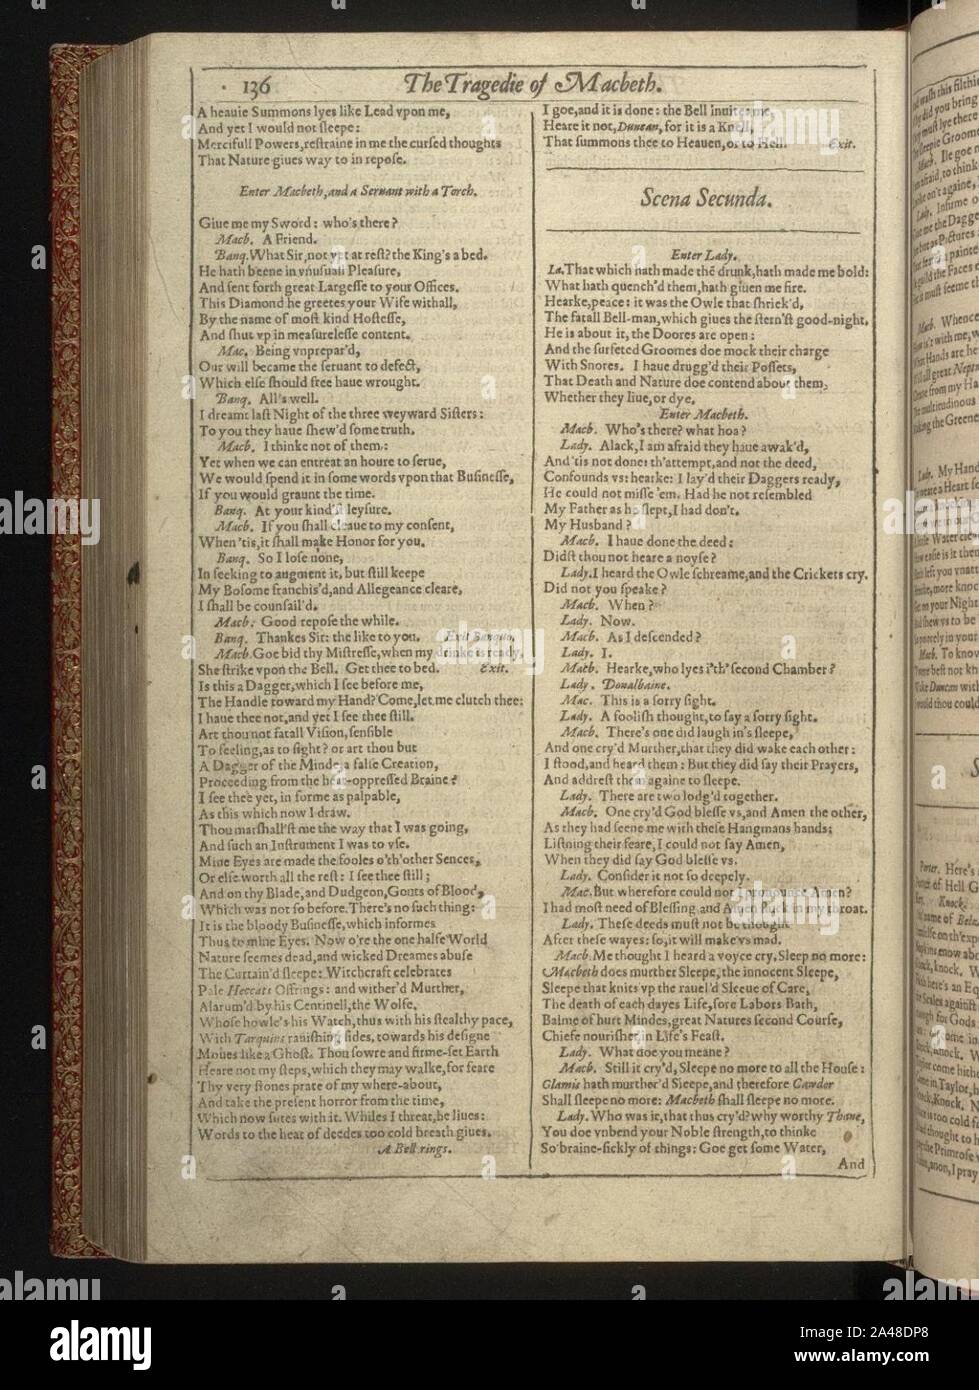 136
The Tragedie of Macbeth.
A heauie Summons lyes like Lead vpon me,
And yet I would not sleepe:
Mercifull Powers, restraine in me the cursed thoughts
That Nature giues way to in repose.
Enter Macbeth, and a Seruant with a Torch.
Giue me my Sword: who's there?
Macb. A Friend.
Banq. What Sir, not yet at rest? the King's a bed.
He hath beene in vnusuall Pleasure,
And sent forth great Largesse to your Offices.
This Diamond he greetes your Wife withall,
By the name of most kind Hostesse,
And shut vp in measurelesse content.
Mac. Being vnprepar'd,
Our will became the seruant to defect,
Which else should free haue wrought.
Banq. All's well.
I dreamt last Night of the three weyward Sisters:
To you they haue shew'd some truth.
Macb. I thinke not of them:
Yet when we can entreat an houre to serue,
We would spend it in some words vpon that Businesse,
If you would graunt the time.
Banq. At your kind'st leysure.
Macb. If you shall cleaue to my consent,
When 'tis, it shall make Honor for you.
Banq. So I lose none,
In seeking to augment it, but still keepe
My Bosome franchis'd, and Allegeance cleare,
I shall be counsail'd.
Macb. Good repose the while.
Banq. Thankes Sir: the like to you. Exit Banquo.
Macb. Goe bid thy Mistresse, when my drinke is ready,
She strike vpon the Bell. Get thee to bed. Exit.
Is this a Dagger, which I see before me,
The Handle toward my Hand? Come, let me clutch thee:
I haue thee not, and yet I see thee still.
Art thou not fatall Vision, sensible
To feeling, as to sight? or art thou but
A Dagger of the Minde, a false Creation,
Proceeding from the heat-oppressed Braine?
I see thee yet, in forme as palpable,
As this which now I draw.
Thou marshall'st me the way that I was going,
And such an Instrument I was to vse.
Mine Eyes are made the fooles o'th'other Sences,
Or else worth all the rest: I see thee still;
And on thy Blade, and Dudgeon, Gouts of Blood,
Which was not so before. There's no such thing:
It is the bloody Businesse, which informes
Thus to mine Eyes. Now o're the one halfe World
Nature seemes dead, and wicked Dreames abuse
The Curtain'd sleepe: Witchcraft celebrates
Pale Heccats Offrings: and wither'd Murther,
Alarum'd by his Centinell, the Wolfe,
Whose howle's his Watch, thus with his stealthy pace,
With Tarquins rauishing sides, towards his designe
Moues like a Ghost. Thou sowre and firme-set Earth
Heare not my steps, which they may walke, for feare
Thy very stones prate of my where-about,
And take the present horror from the time,
Which now sutes with it. Whiles I threat, he liues:
Words to the heat of deedes too cold breath giues.
A Bell rings.
I goe, and it is done: the Bell inuites me.
Heare it not, Duncan, for it is a Knell,
That summons thee to Heauen, or to Hell. Exit.
Scena Secunda.
Enter Lady.
La. That which hath made thē drunk, hath made me bold:
What hath quench'd them, hath giuen me fire.
Hearke, peace: it was the Owle that shriek'd,
The fatall Bell-man, which giues the stern'st good-night.
He is about it, the Doores are open:
And the surfeted Groomes doe mock their charge
With Snores. I haue drugg'd their Possets,
That Death and Nature doe contend about them,
Whether they liue, or dye.
Enter Macbeth.
Macb. Who's there? what hoa?
Lady. Alack, I am afraid they haue awak'd,
And 'tis not done: th'attempt, and not the deed,
Confounds vs: hearke: I lay'd their Daggers ready,
He could not misse 'em. Had he not resembled
My Father as he slept, I had don't.
My Husband?
Macb. I haue done the deed:
Didst thou not heare a noyse?
Lady. I heard the Owle schreame, and the Crickets cry.
Did not you speake?
Macb. When?
Lady. Now.
Macb. As I descended?
Lady. I.
Macb. Hearke, who lyes i'th' second Chamber?
Lady. Donalbaine.
Mac. This is a sorry sight.
Lady. A foolish thought, to say a sorry sight.
Macb. There's one did laugh in's sleepe,
And one cry'd Murther, that they did wake each other:
I stood, and heard them: But they did say their Prayers,
And addrest them againe to sleepe.
Lady. There are two lodg'd together.
Macb. One cry'd God blesse vs, and Amen the other,
As they had seene me with these Hangmans hands:
Listning their feare, I could not say Amen,
When they did say God blesse vs.
Lady. Consider it not so deepely.
Mac. But wherefore could not I pronounce Amen?
I had most need of Blessing, and Amen stuck in my throat.
Lady. These deeds must not be thought
After these wayes: so, it will make vs mad.
Macb. Me thought I heard a voyce cry, Sleep no more:
Macbeth does murther Sleepe, the innocent Sleepe,
Sleepe that knits vp the rauel'd Sleeue of Care,
The death of each dayes Life, sore Labors Bath,
Balme of hurt Mindes, great Natures second Course,
Chiefe nourisher in Life's Feast.
Lady. What doe you meane?
Macb. Still it cry'd, Sleepe no more to all the House:
Glamis hath murther'd Sleepe, and therefore Cawdor
Shall sleepe no more: Macbeth shall sleepe no more.
Lady. Who was it, that thus cry'd? why worthy Thane,
You doe vnbend your Noble strength, to thinke
So braine-sickly of things: Goe get some Water,
And
alamy
Image ID: 2A48DP8
www.alamy.com